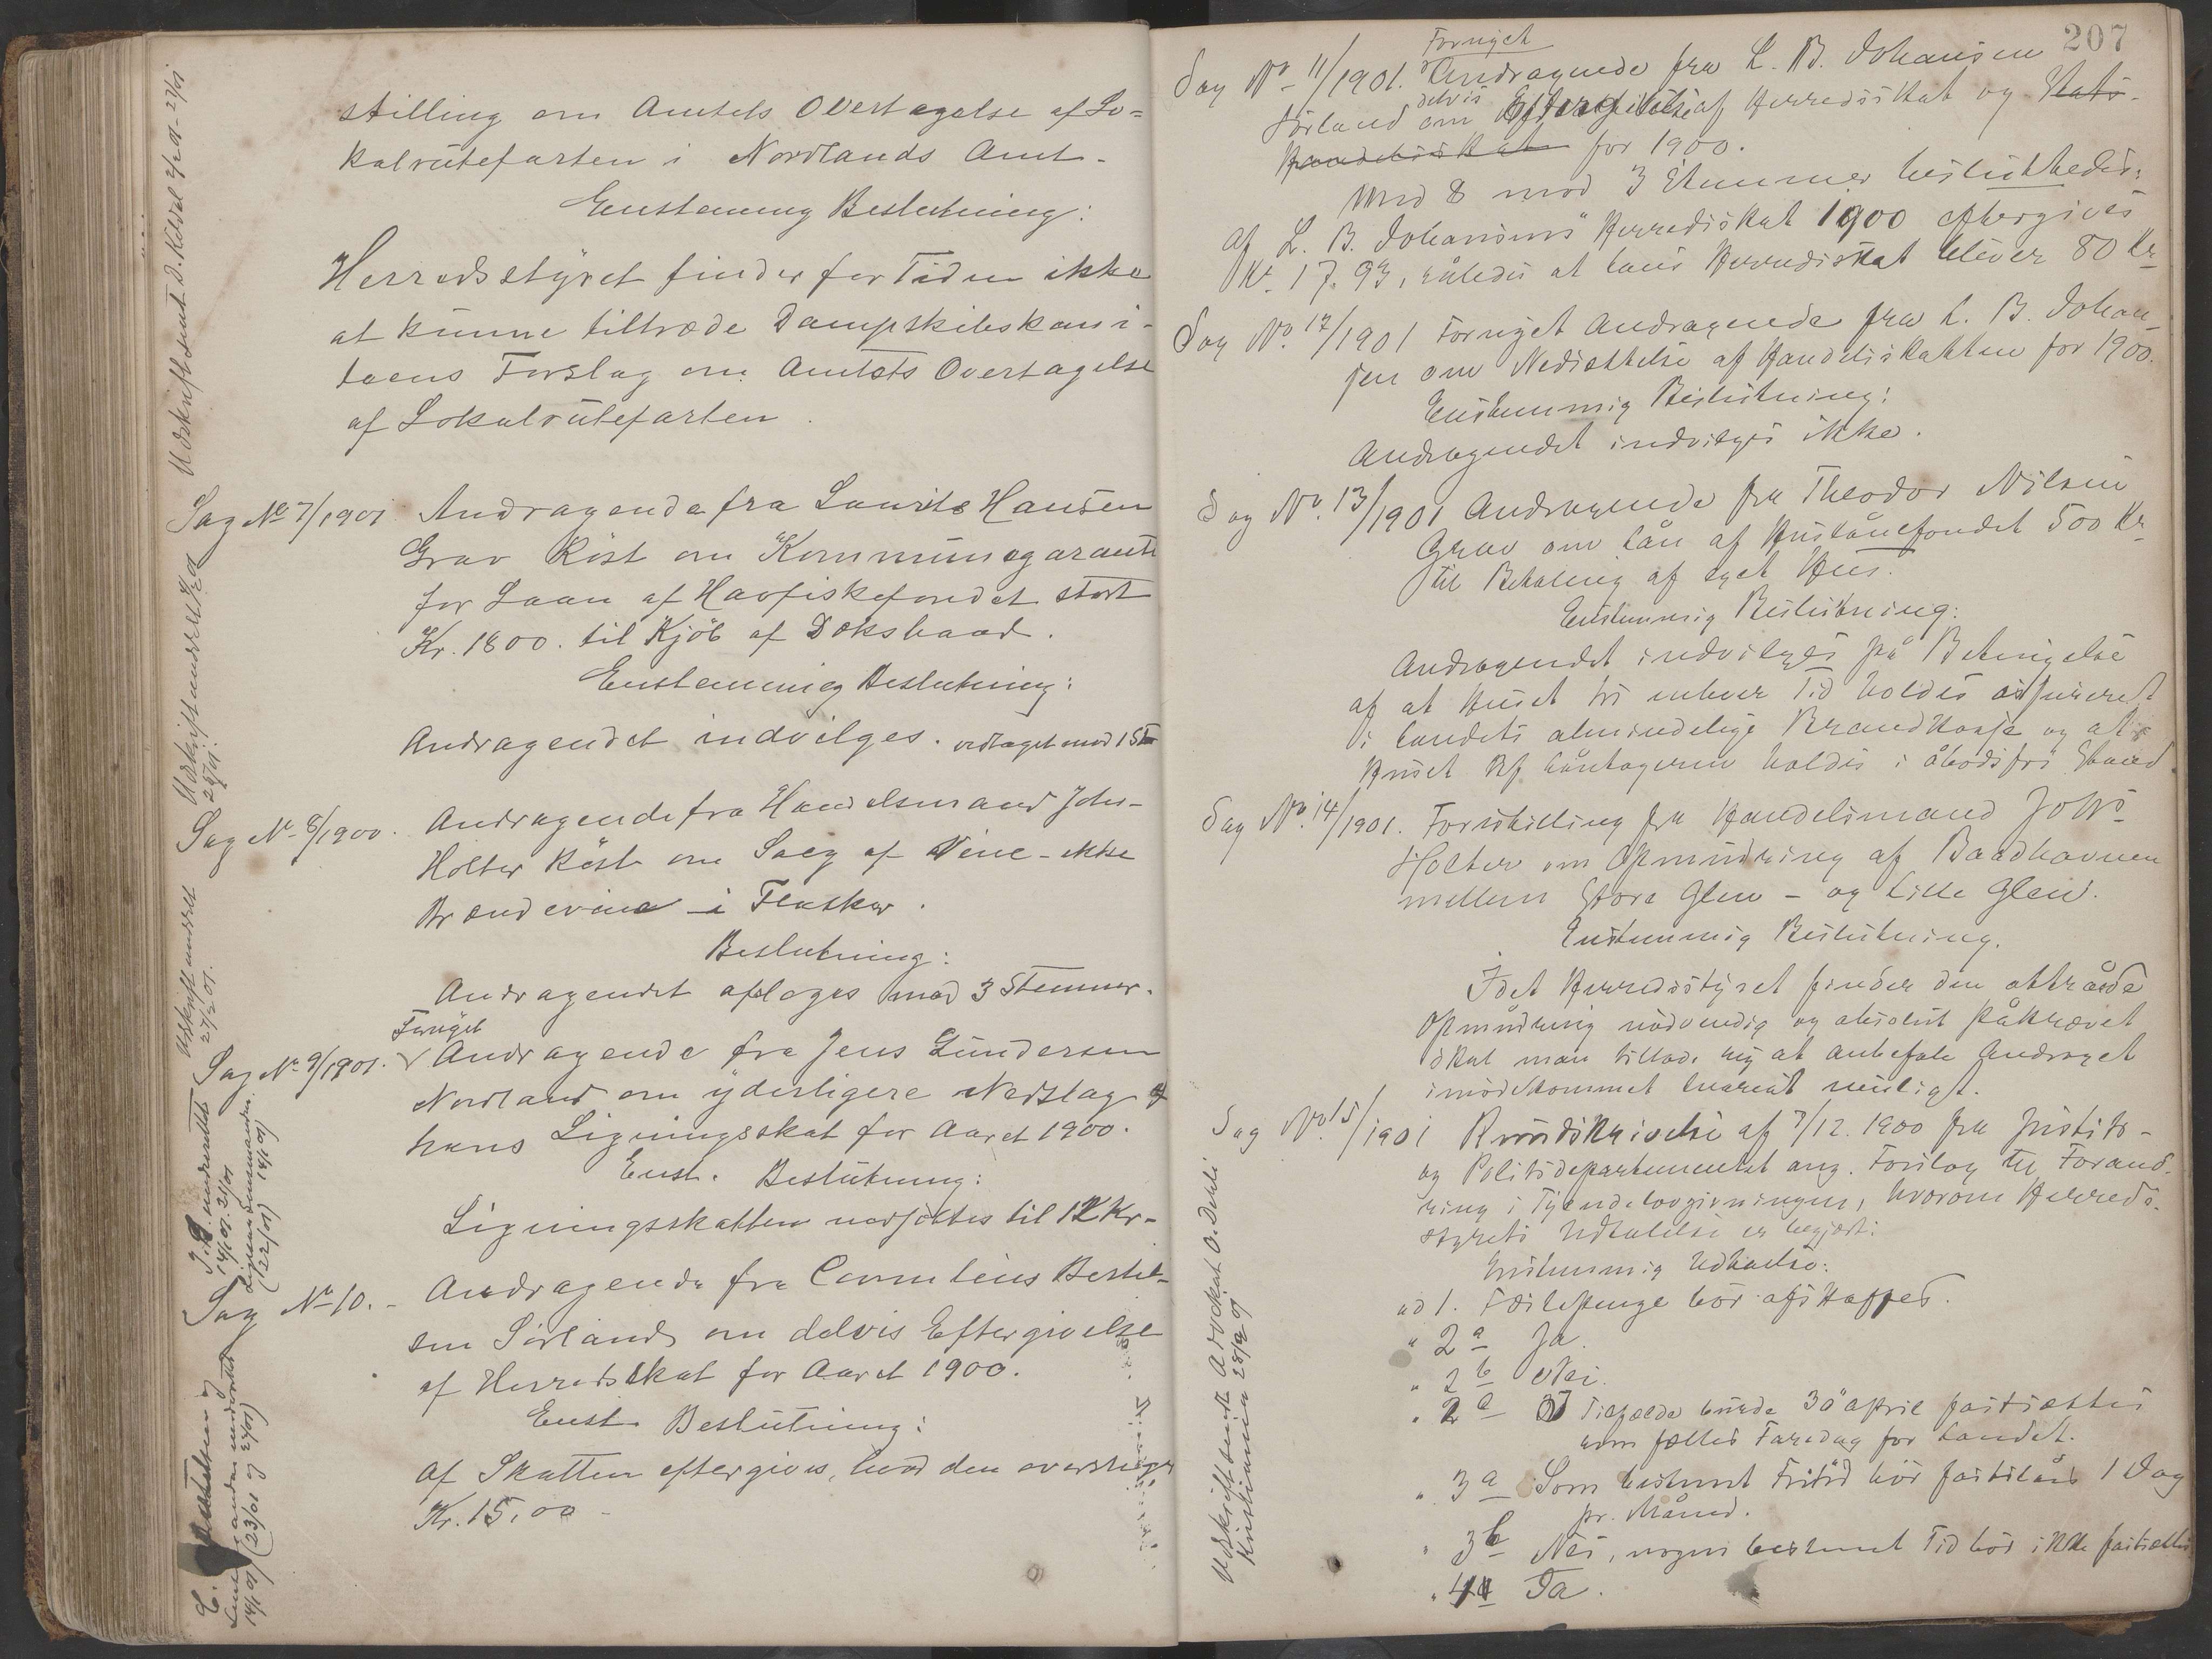 stilling om Amtets Overtagelse af Lo=
kalrutefarten i Nordlands Amt.
Enstemmig Beslutning:
Herredsstyret finder for Tiden ikke
at kunne tiltræde Dampskibskomi-
teens Forslag om Amtets Overtagelse
af Lokalrutefarten.
Sag No 7/1901 Andragende fra Laurits Hansen
Grav Röst om Kommunegaranti
for Laan af Havfiskefondet stort
Kr. 1800. til Kjöb af Däksbaad.
Enstemmig Beslutning:
Andragendet indvilges. vedtaget mod 1 St
Sag No 8/1900. Andragende fra Handelsmand Johs-
Holter Röst om Salg af Vine - ikke
Brændevine - i Flasker.
Beslutning:
Andragendet afsloges mod 3 Stemmer.
Fornyet
Sag No 9/1901. Andragende fra Jens Gundersen
Nordland om yderligere Nedslag i
hans Ligningsskat for Aaret 1900.
Enst. Beslutning:
Ligningsskatten nedsættes til 12 Kr-
Sag No 10. - Andragende fra Cornelius Bertel-
sen Sörland om delvis Eftergivelse
af Herredsskat for Aaret 1900.
Enst. Beslutning:
Af Skatten eftergives, hvad den overstiger
Kr. 15,00 -
Udskrift sendt D. Kolvel
Udskrift meddelt
Udskrift meddelt
27/2 01.
207
Fornyet
Sag No 11/1901. Andragende fra L. B. Johansen
Sörland om delvis Eftergivelse af Herredsskat og Stats-
Handelsskat for 1900.
Med 8 mod 3 Stemmer besluttedes:
Af L. B. Johansens Herredsskat 1900 eftergives
Kr. 17.93, således at hans Herredsskat bliver 80 Kr
Sag No 12/1901 Fornyet Andragende fra L. B. Johan-
sen om Nedsættelse af Handelsskatten for 1900.
Enstemmig Beslutning:
Andragendet indvilges ikke.
Sag No. 13/1901 Andragende fra Theodor Nilsen
Grav om Lån af Huslånefondet 500 Kr
til Betaling af eget Hus.
Enstemmig Beslutning:
Andragendet indvilges på Betingelse
af at Huset til enhver Tid holdes assureret
i Landets almindelige Brandkasse og at
Huset af Låntageren holdes i åbodsfri Stand
Sag No. 14/1901. Forestilling fra Handelsmand Johs
Holter om Opmudring af Baadhavnen
mellem Store Glea - og Lille Glea.
Enstemmig Beslutning.
Idet Herredsstyret finder den attråede
Opmudring nödvendig og absolut påkrævet
skal man tillade sig at anbefale Andraget
imödekommet snarest muligt.
Sag No. 15/1901 Rundskrivelse af 7/12. 1900 fra Justits-
og Politidepartementet ang. Forslag til Forand-
ring i Tyendelovgivningen, hvorom Herreds-
styrets Udtalelse er begjært:
Enstemmig Udtalelse:
ad 1. Fæstepenge bör afskaffes.
" 2 a Ja.
" 2 b Nei.
" 2 c I Tilfælde burde 30 April fastsættes
som fælles Faredag for Landet.
" 3 a Som bestemt Fritid bör fastslåes 1 Dag
pr. Måned.
" 3 b Nei, nogen bestemt Tid bör ikke fastsættes
" 4 a Ja.
Udskrift sendt Advokat O. Dehli
Kristiania 28/2 01